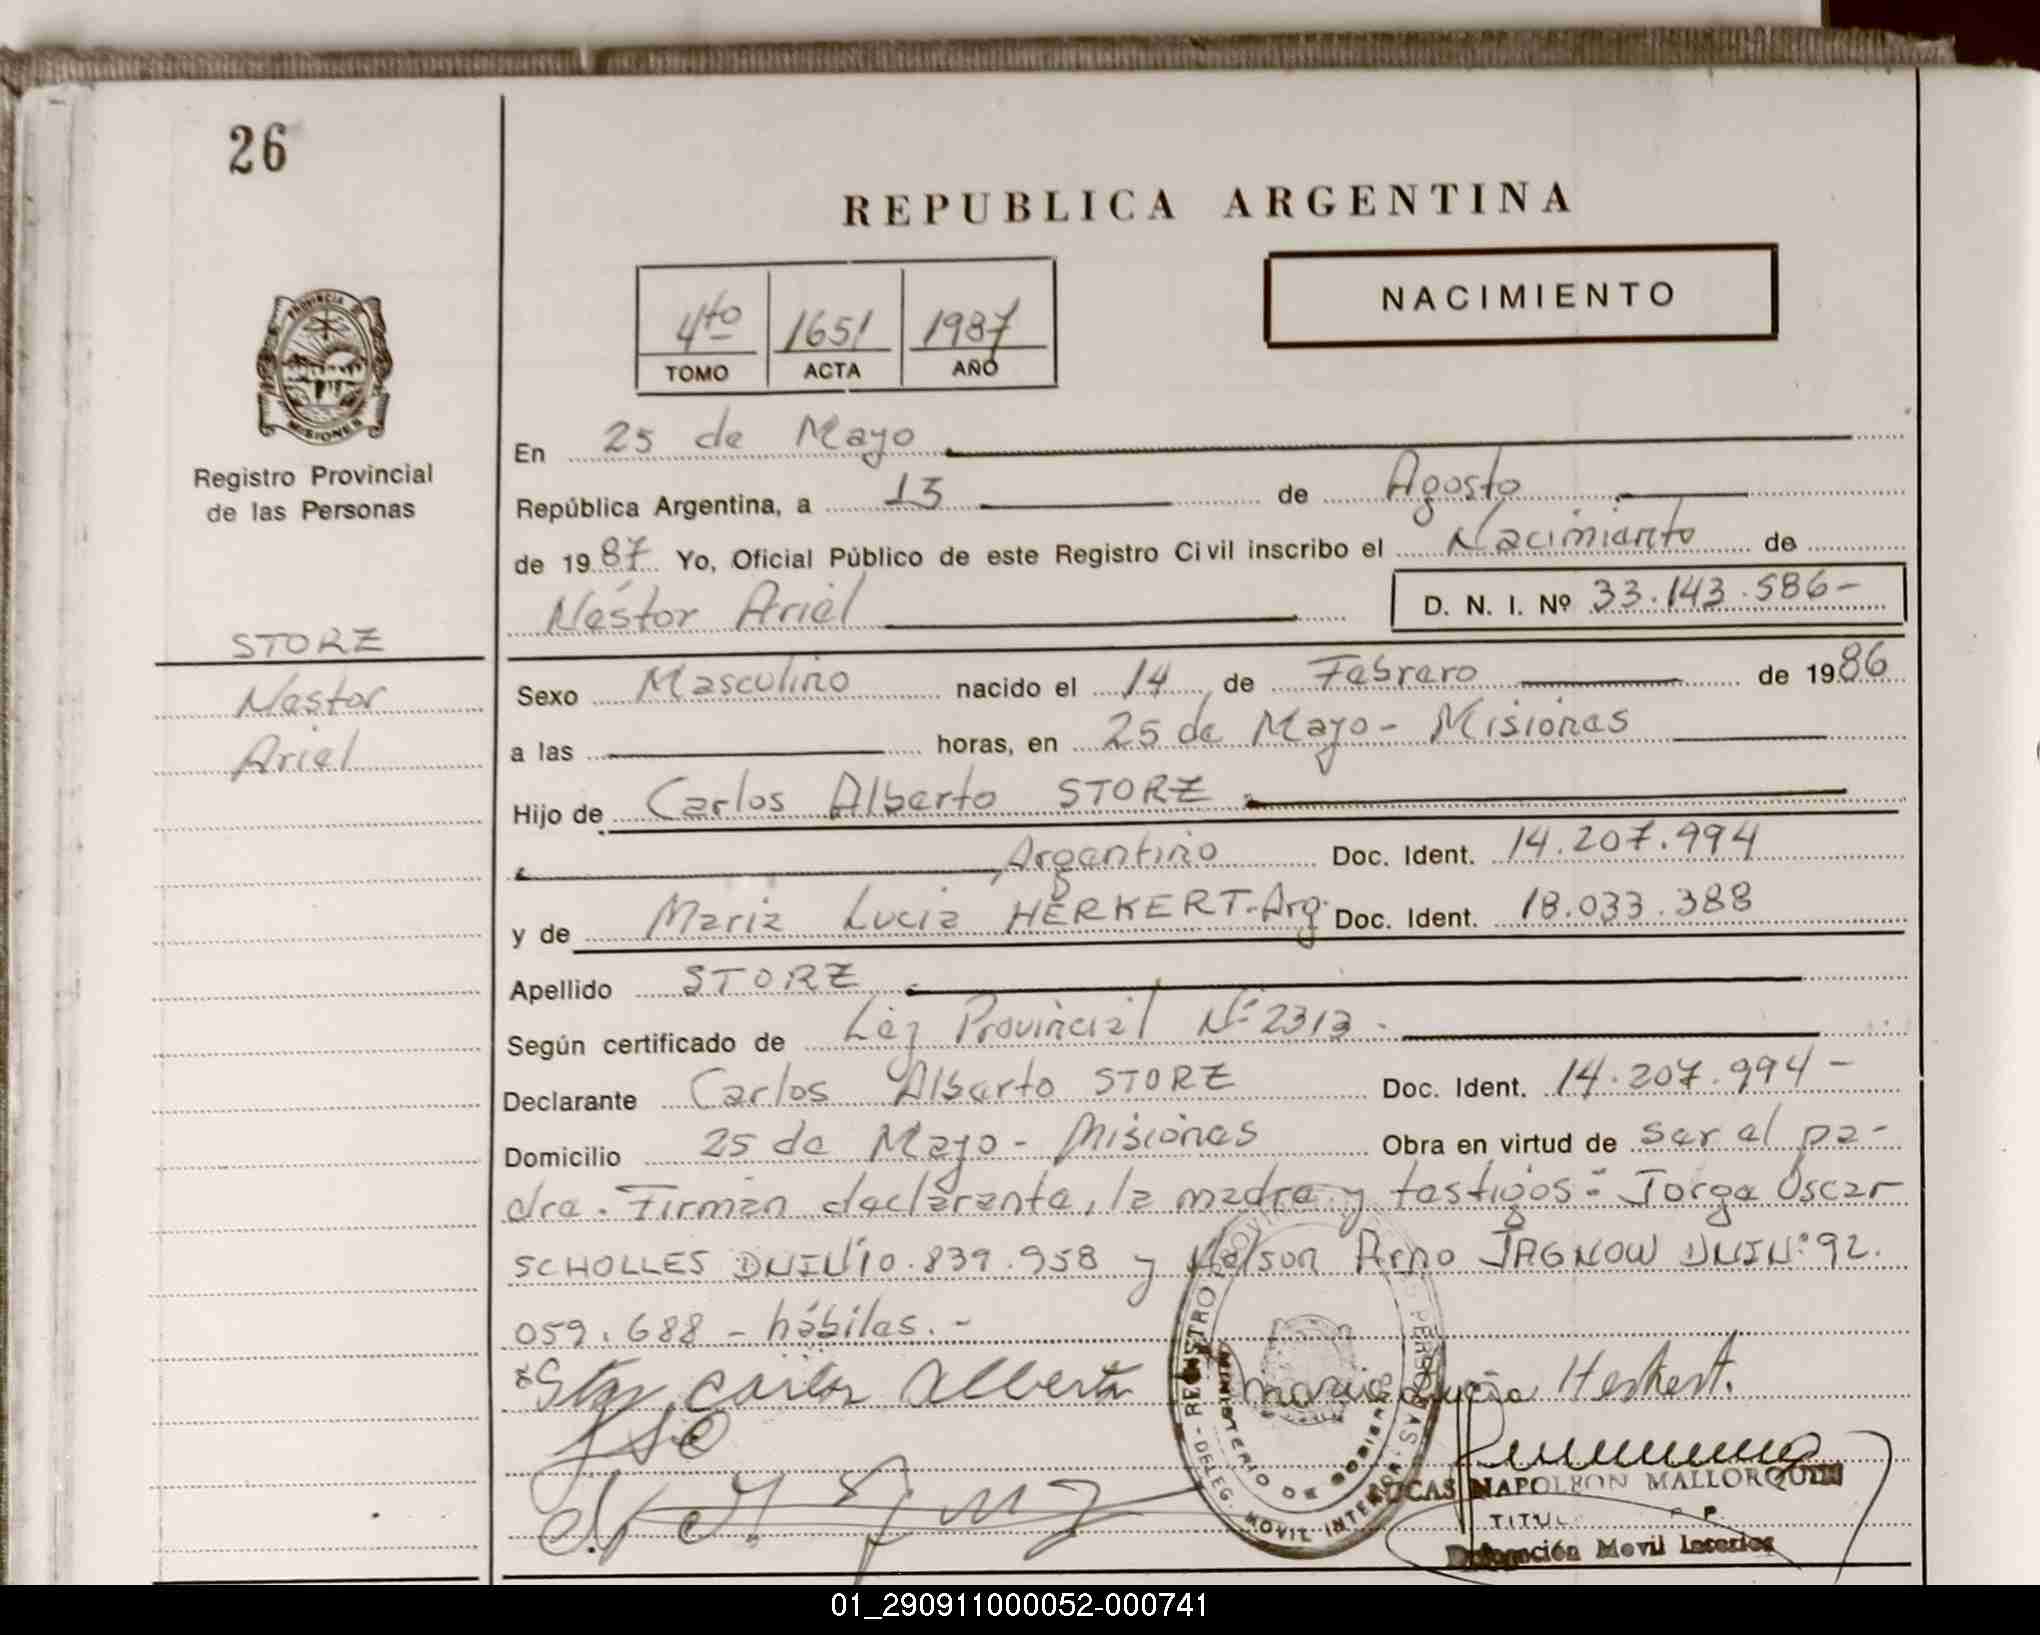 26
REPUBLICA ARGENTINA
NACIMIENTO
4to 1651 1987
TOMO ACTA AÑO
PROVINCIA DE
MISIONES
Registro Provincial
de las Personas
STORZ
Nestor
Ariel
En 25 de Mayo
República Argentina, a 13 de Agosto
de 1987 Yo, Oficial Público de este Registro Civil inscribo el Nacimiento de
Néstor Ariel D. N. I. Nº 33.143.586-
Sexo Masculino nacido el 14 de Febrero de 1986
a las horas, en 25 de Mayo - Misiones
Hijo de Carlos Alberto STORZ
, Argentino Doc. Ident. 14.207.994
y de Maria Lucia HERKERT-Arg. Doc. Ident. 18.033.388
Apellido STORZ
Según certificado de Ley Provincial Nº 2313.
Declarante Carlos Alberto STORZ Doc. Ident. 14.207.994-
Domicilio 25 de Mayo - Misiones Obra en virtud de ser el pa-
dre. Firman declarante, la madre y testigos: Jorge Oscar
SCHOLLES DNINº10.839.958 y Nelson Arno JAGNOW DNIN°92.
059.688 - hábiles.-
Storz Carlos Alberto Maria Lucia Herkert.
REGISTRO PERSONAS
MINISTERIO DE GOBIERNO
- DELEG. MOVIL INTERIOR -
LUCAS NAPOLEON MALLORQUIN
TITUL
Delegación Movil Interior
01_290911000052-000741